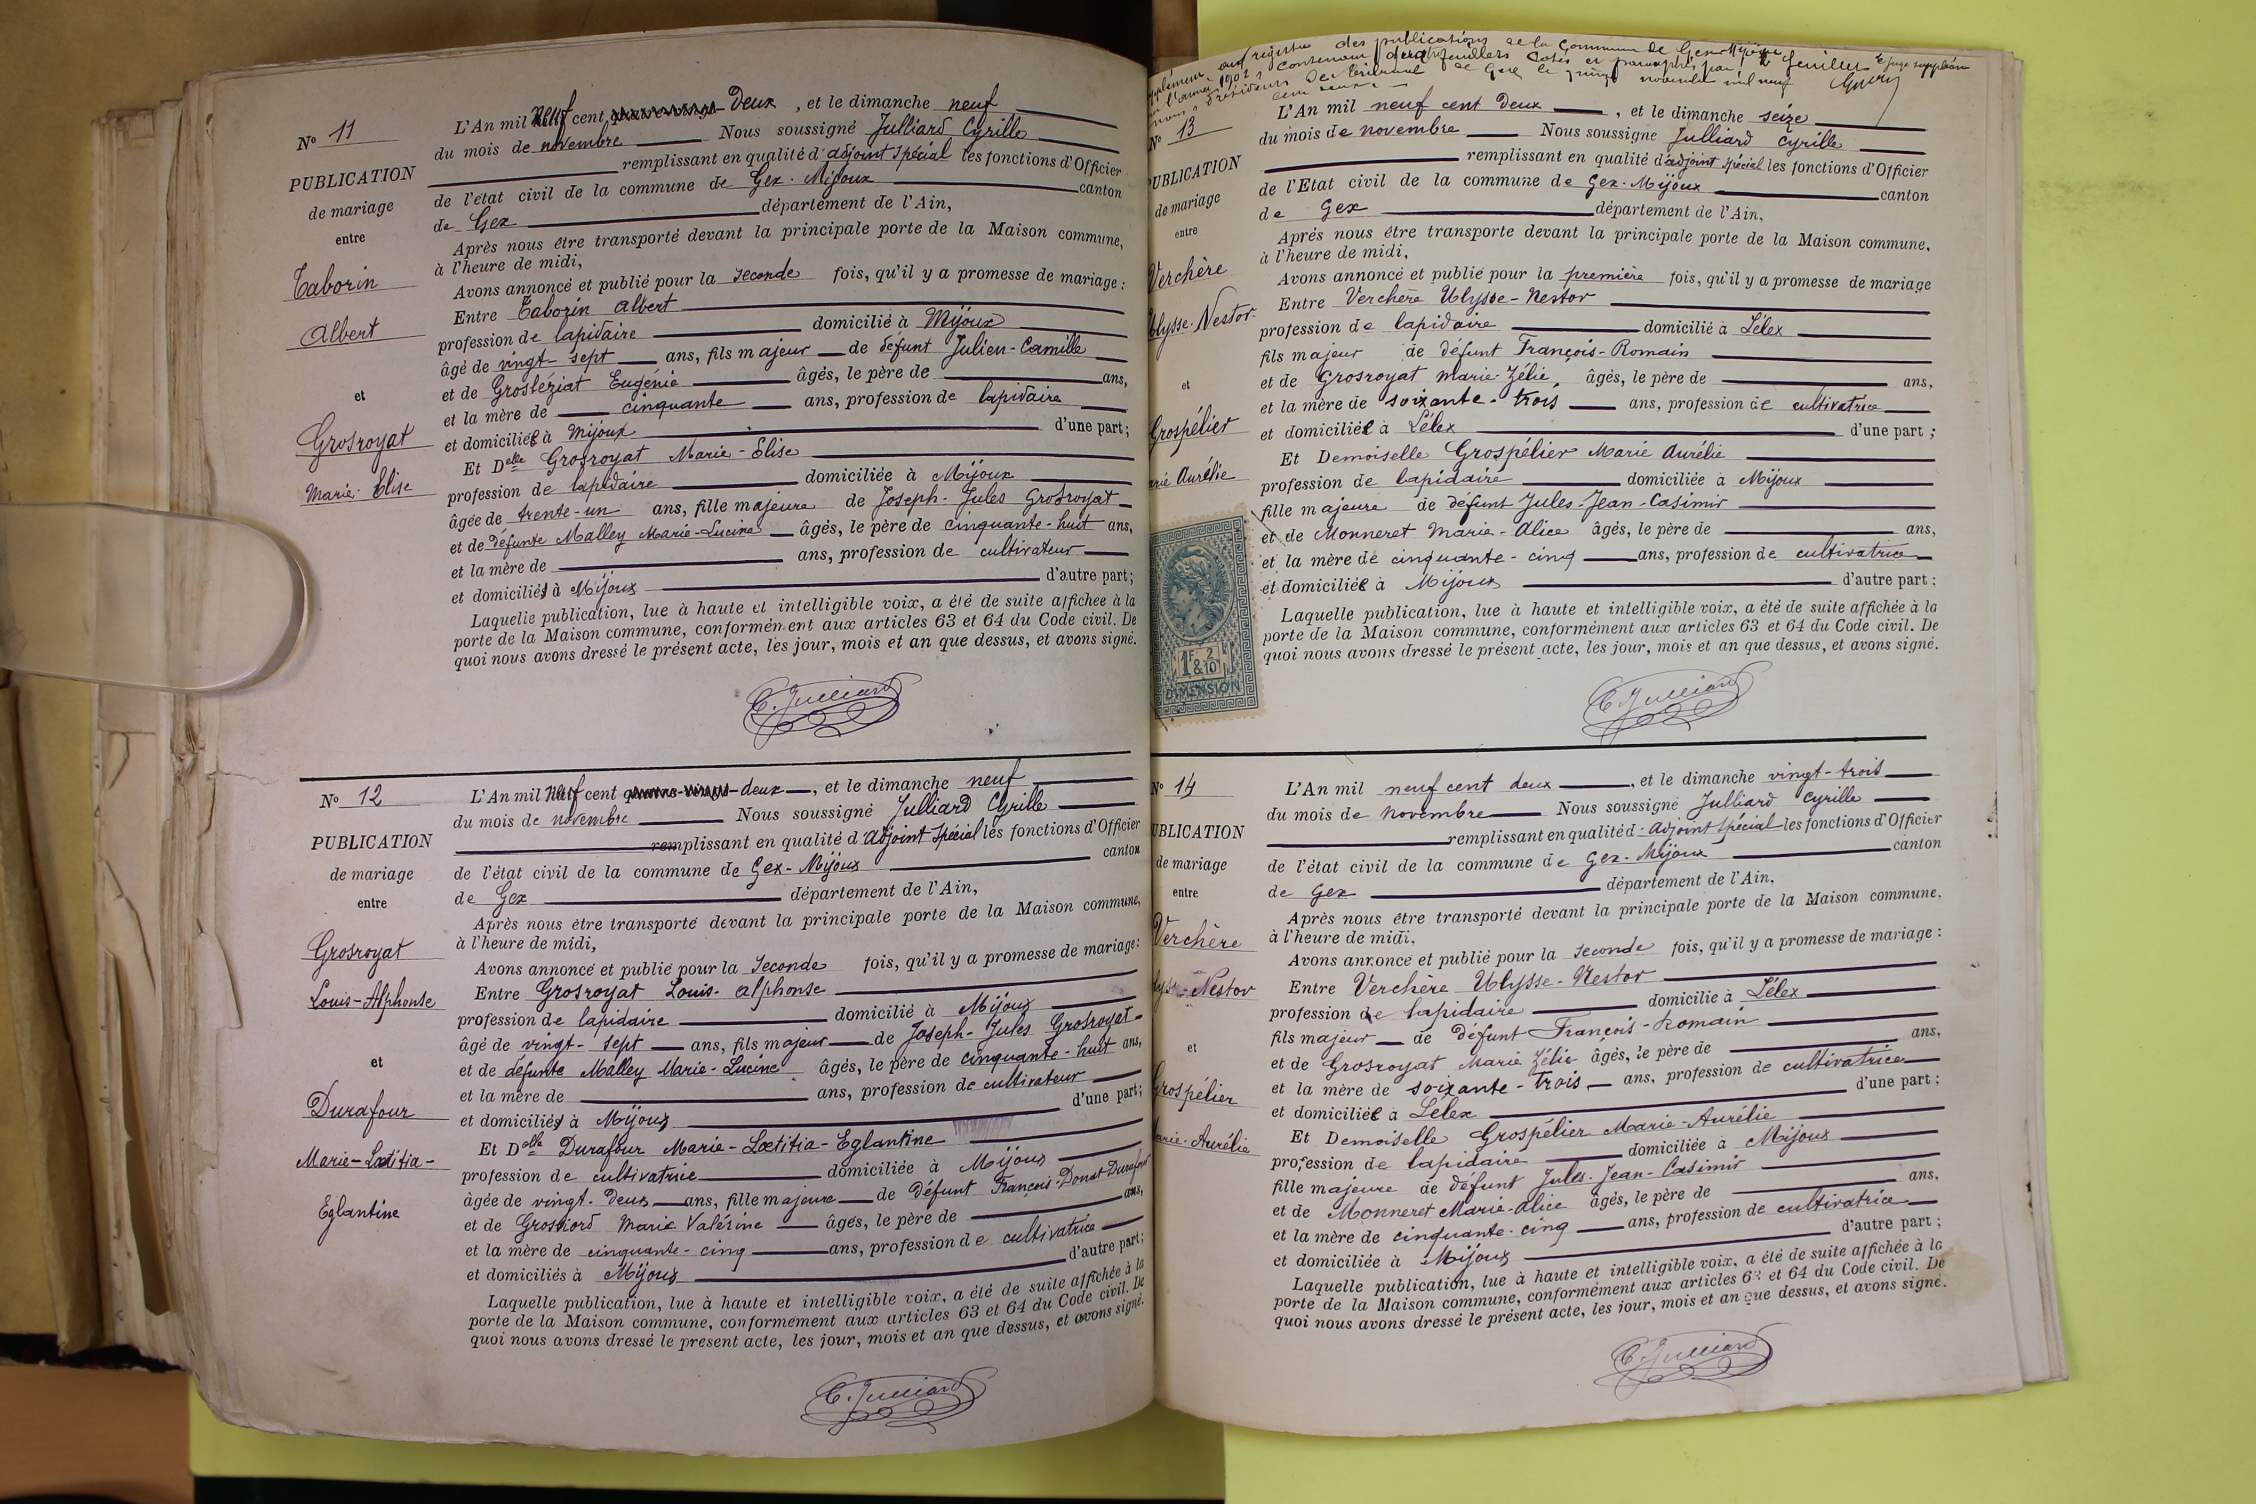 N° 11
PUBLICATION
de mariage
entre
Taborin
Albert
et
Grosroyat
Marie-Elise
L'An mil Neuf cent, Deux , et le dimanche neuf
du mois de novembre Nous soussigné Julliard Cyrille
remplissant en qualité d'adjoint spécial les fonctions d'Officier
de l'état civil de la commune de Gex-Mijoux canton
de Gex département de l'Ain,
Après nous être transporté devant la principale porte de la Maison commune,
à l'heure de midi,
Avons annoncé et publié pour la seconde fois, qu'il y a promesse de mariage :
Entre Taborin Albert
profession de lapidaire domicilié à Mijoux
âgé de vingt-sept ans, fils majeur de défunt Julien-Camille
et de Grosléziat Eugénie âgés, le père de ans,
et la mère de cinquante ans, profession de lapidaire
et domiciliée à Mijoux d'une part;
Et Delle Grosroyat Marie-Elise
profession de lapidaire domiciliée à Mijoux
âgée de trente-un ans, fille majeure de Joseph-Jules Grosroyat
et de défunte Malley Marie-Lucine âgés, le père de cinquante-huit ans,
et la mère de ans, profession de cultivateur
et domicilié à Mijoux d'autre part;
Laquelle publication, lue à haute et intelligible voix, a été de suite affichée à la
porte de la Maison commune, conformément aux articles 63 et 64 du Code civil. De
quoi nous avons dressé le présent acte, les jour, mois et an que dessus, et avons signé.
C. Julliard
N° 12
PUBLICATION
de mariage
entre
Grosroyat
Louis-Alphonse
et
Durafour
Marie-Lœtitia-
Eglantine
L'An mil Neuf cent quatre-vingt- deux , et le dimanche neuf
du mois de novembre Nous soussigné Julliard Cyrille
remplissant en qualité d'adjoint spécial les fonctions d'Officier
de l'état civil de la commune de Gex-Mijoux canton
de Gex département de l'Ain,
Après nous être transporté devant la principale porte de la Maison commune,
à l'heure de midi,
Avons annoncé et publié pour la seconde fois, qu'il y a promesse de mariage:
Entre Grosroyat Louis-alphonse
profession de lapidaire domicilié à Mijoux
âgé de vingt-sept ans, fils majeur de Joseph-Jules Grosroyat
et de défunte Malley Marie-Lucine âgés, le père de cinquante-huit ans,
et la mère de ans, profession de cultivateur
et domicilié à Mijoux d'une part;
Et Delle Durafour Marie-Lœtitia-Eglantine
profession de cultivatrice domiciliée à Mijoux
âgée de vingt-deux ans, fille majeure de défunt François-Donat Durafour
et de Grossiord Marie Valésine âgés, le père de ans,
et la mère de cinquante-cinq ans, profession de cultivatrice
et domiciliés à Mijoux d'autre part;
Laquelle publication, lue à haute et intelligible voix, a été de suite affichée à la
porte de la Maison commune, conformément aux articles 63 et 64 du Code civil. De
quoi nous avons dressé le présent acte, les jour, mois et an que dessus, et avons signé.
C. Julliard
au registre des publications de la Commune de Gex-Mijoux
1902, contenant deux feuillets cotés et paraphés par
du Tribunal de Gex le novembre mil neuf
cent deux
N° 13
PUBLICATION
de mariage
entre
Verchère
Ulysse-Nestor
et
Grospélier
Marie Aurélie
1F & 2/10
DIMENSION
L'An mil neuf cent deux , et le dimanche seize
du mois de novembre Nous soussigné Julliard Cyrille
remplissant en qualité d'adjoint spécial les fonctions d'Officier
de l'Etat civil de la commune de Gex-Mijoux canton
de Gex département de l'Ain,
Après nous être transporté devant la principale porte de la Maison commune,
à l'heure de midi,
Avons annoncé et publié pour la première fois, qu'il y a promesse de mariage
Entre Verchère Ulysse-Nestor
profession de lapidaire domicilié à Lélex
fils majeur de défunt François-Romain
et de Grosroyat Marie-Zélie, âgés, le père de ans,
et la mère de soixante-trois ans, profession de cultivatrice
et domiciliée à Lélex d'une part ;
Et Demoiselle Grospélier Marie Aurélie
profession de lapidaire domiciliée à Mijoux
fille majeure de défunt Jules-Jean-Casimir
et de Monneret Marie-Alice âgés, le père de ans,
et la mère de cinquante-cinq ans, profession de cultivatrice
et domiciliée à Mijoux d'autre part ;
Laquelle publication, lue à haute et intelligible voix, a été de suite affichée à la
porte de la Maison commune, conformément aux articles 63 et 64 du Code civil. De
quoi nous avons dressé le présent acte, les jour, mois et an que dessus, et avons signé.
C. Julliard
N° 14
PUBLICATION
de mariage
entre
Verchère
Ulysse-Nestor
et
Grospélier
Marie-Aurélie
L'An mil neuf cent deux , et le dimanche vingt-trois
du mois de novembre Nous soussigné Julliard Cyrille
remplissant en qualité d'adjoint spécial les fonctions d'Officier
de l'état civil de la commune de Gex-Mijoux canton
de Gex département de l'Ain,
Après nous être transporté devant la principale porte de la Maison commune,
à l'heure de midi,
Avons annoncé et publié pour la seconde fois, qu'il y a promesse de mariage :
Entre Verchère Ulysse-Nestor
profession de lapidaire domicilié à Lélex
fils majeur de défunt François-Romain
et de Grosroyat Marie Zélie âgés, le père de ans,
et la mère de soixante-trois ans, profession de cultivatrice
et domiciliée à Lélex d'une part ;
Et Demoiselle Grospélier Marie-Aurélie
profession de lapidaire domiciliée à Mijoux
fille majeure de défunt Jules-Jean-Casimir
et de Monneret Marie-Alice âgés, le père de ans,
et la mère de cinquante-cinq ans, profession de cultivatrice
et domiciliée à Mijoux d'autre part ;
Laquelle publication, lue à haute et intelligible voix, a été de suite affichée à la
porte de la Maison commune, conformément aux articles 63 et 64 du Code civil. De
quoi nous avons dressé le présent acte, les jour, mois et an que dessus, et avons signé.
C. Julliard